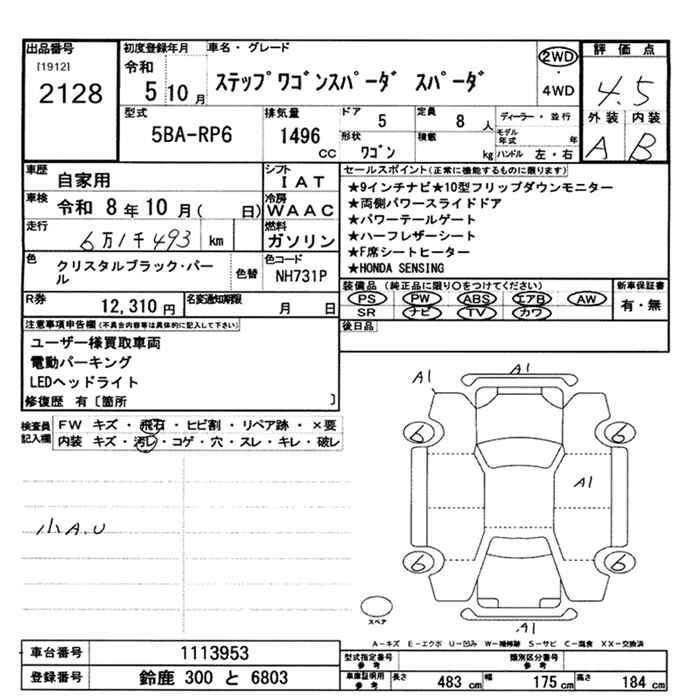 出品番号
[1912]
2128
初度登録年月
令和
5 10 月
車名・グレード
ステップワゴンスパーダ スパーダ
2WD
・
4WD
評価点
4.5
外装 内装
A B
型式
5BA-RP6
排気量
1496
CC
ドア
5
定員
8 人
形状
ワゴン
積載
kg
ディーラー・並行
モデル年式 年
ハンドル 左・右
車歴
自家用
シフト
IAT
車検
令和 8年10月( 日)
冷房
WAAC
走行
6万1千493 km
燃料
ガソリン
色
クリスタルブラック・パール
色替
色コード
NH731P
R券
12,310 円
名変通知期限
月 日
セールスポイント(正常に機能するものに限ります)
★9インチナビ★10型フリップダウンモニター
★両側パワースライドドア
★パワーテールゲート
★ハーフレザーシート
★F席シートヒーター
★HONDA SENSING
装備品(純正品に限り○をつけてください)
PS PW ABS エアB AW
SR ナビ TV カワ
新車保証書
有・無
後日品
注意事項申告欄(不具合内容等は具体的に記入して下さい)
ユーザー様買取車両
電動パーキング
LEDヘッドライト
修復歴 有〔箇所 〕
検査員記入欄
FW キズ・飛石・ヒビ割・リペア跡・×要
内装 キズ・汚レ・コゲ・穴・スレ・キレ・破レ
小A.U
A1
A1
6 6
A1
6 6
A1
スペア
A－キズ E－エクボ U－凹み W－補修跡 S－サビ C－腐食 XX－交換済
車台番号
1113953
登録番号
鈴鹿 300 と 6803
型式指定番号
参考
類別区分番号
参考
車庫証明用
参考
長さ 483 cm 幅 175 cm 高さ 184 cm